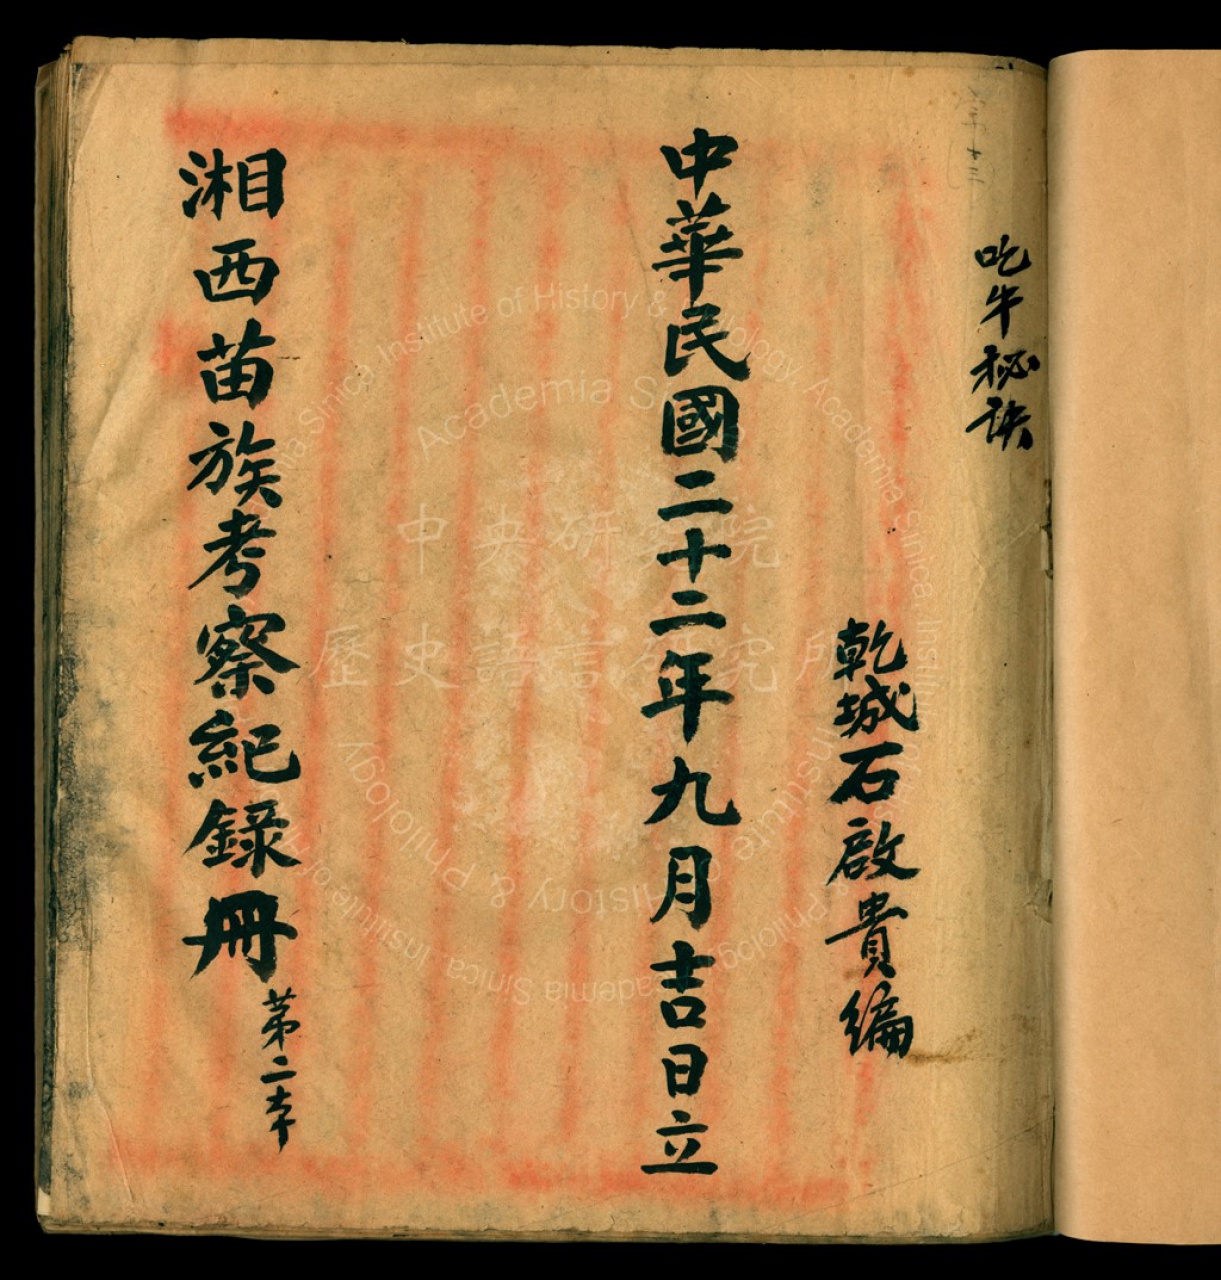 吃牛秘訣
乾城石啟貴編
中華民國二十二年九月吉日立
湘西苗族考察紀錄冊第二本
中央研究院
歷史語言研究所
Academia Sinica
Institute of History & Philology, Academia Sinica